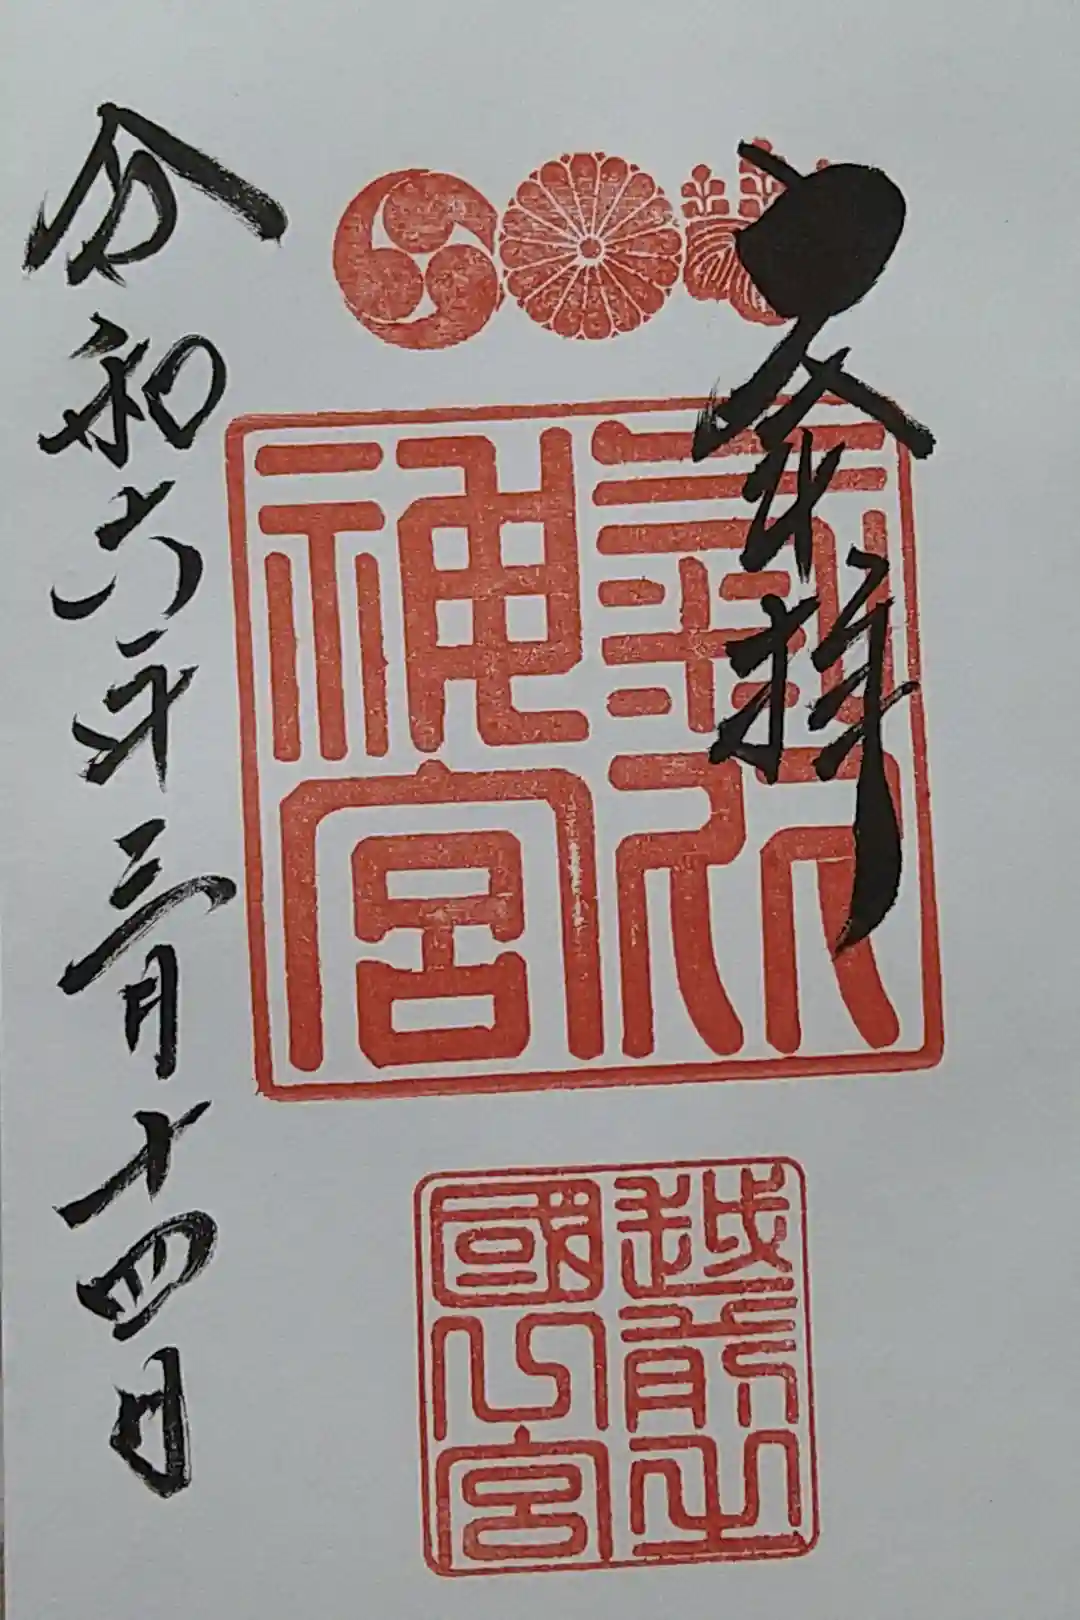 奉拝
氣比
神宮
越前之
國一宮
令和六年三月十四日